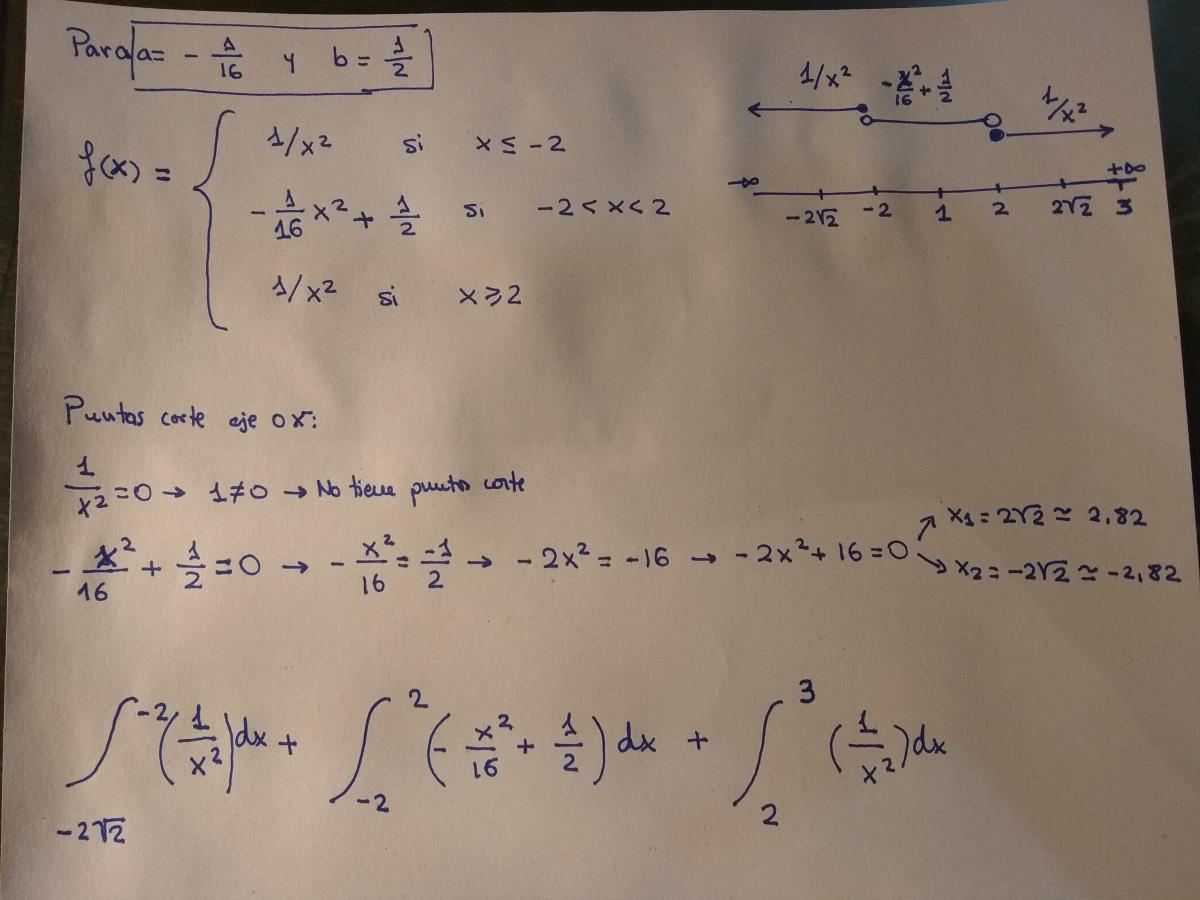 Para a = - 1/16 y b = 1/2
f(x) = {
1/x² si x ≤ -2
- 1/16 x² + 1/2 si -2 < x < 2
1/x² si x ≥ 2
1/x² - x²/16 + 1/2 1/x²
-∞ +∞
-2√2 -2 1 2 2√2 3
Puntos corte eje OX:
1/x² = 0 → 1 ≠ 0 → No tiene puntos corte
- x²/16 + 1/2 = 0 → - x²/16 = -1/2 → - 2x² = -16 → - 2x² + 16 = 0
x₁ = 2√2 ≃ 2,82
x₂ = -2√2 ≃ -2,82
∫_{-2√2}^{-2} (1/x²) dx + ∫_{-2}^{2} (- x²/16 + 1/2) dx + ∫_{2}^{3} (1/x²) dx